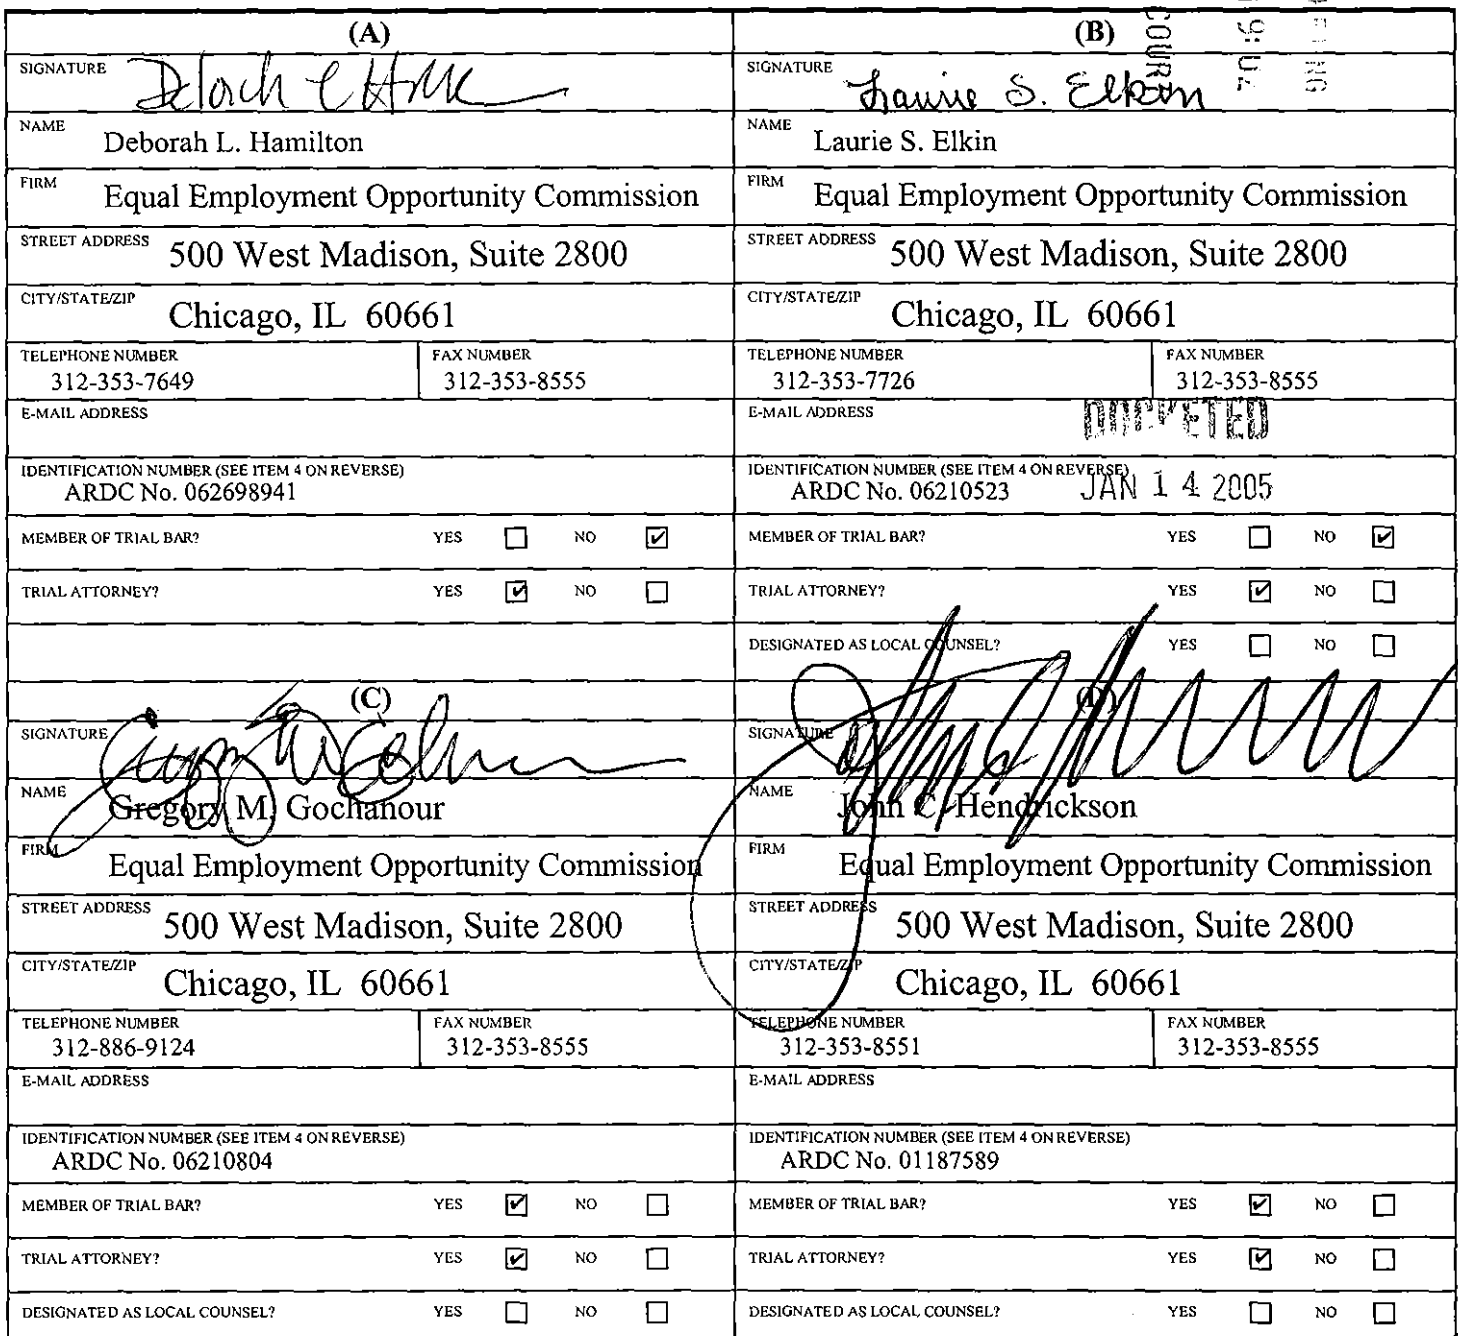 (A)
SIGNATURE
NAME Deborah L. Hamilton
FIRM Equal Employment Opportunity Commission
STREET ADDRESS 500 West Madison, Suite 2800
CITY/STATE/ZIP Chicago, IL 60661
TELEPHONE NUMBER FAX NUMBER
312-353-7649 312-353-8555
E-MAIL ADDRESS
IDENTIFICATION NUMBER (SEE ITEM 4 ON REVERSE)
ARDC No. 062698941
MEMBER OF TRIAL BAR? YES ☐ NO ☑
TRIAL ATTORNEY? YES ☑ NO ☐
(B)
COURT
SIGNATURE Laurie S. Elkin
NAME Laurie S. Elkin
FIRM Equal Employment Opportunity Commission
STREET ADDRESS 500 West Madison, Suite 2800
CITY/STATE/ZIP Chicago, IL 60661
TELEPHONE NUMBER FAX NUMBER
312-353-7726 312-353-8555
E-MAIL ADDRESS
DOCKETED
IDENTIFICATION NUMBER (SEE ITEM 4 ON REVERSE)
ARDC No. 06210523
JAN 14 2005
MEMBER OF TRIAL BAR? YES ☐ NO ☑
TRIAL ATTORNEY? YES ☑ NO ☐
DESIGNATED AS LOCAL COUNSEL? YES ☐ NO ☐
(C)
SIGNATURE
NAME Gregory M. Gochanour
FIRM Equal Employment Opportunity Commission
STREET ADDRESS 500 West Madison, Suite 2800
CITY/STATE/ZIP Chicago, IL 60661
TELEPHONE NUMBER FAX NUMBER
312-886-9124 312-353-8555
E-MAIL ADDRESS
IDENTIFICATION NUMBER (SEE ITEM 4 ON REVERSE)
ARDC No. 06210804
MEMBER OF TRIAL BAR? YES ☑ NO ☐
TRIAL ATTORNEY? YES ☑ NO ☐
DESIGNATED AS LOCAL COUNSEL? YES ☐ NO ☐
(D)
SIGNATURE
NAME John C. Hendrickson
FIRM Equal Employment Opportunity Commission
STREET ADDRESS 500 West Madison, Suite 2800
CITY/STATE/ZIP Chicago, IL 60661
TELEPHONE NUMBER FAX NUMBER
312-353-8551 312-353-8555
E-MAIL ADDRESS
IDENTIFICATION NUMBER (SEE ITEM 4 ON REVERSE)
ARDC No. 01187589
MEMBER OF TRIAL BAR? YES ☑ NO ☐
TRIAL ATTORNEY? YES ☑ NO ☐
DESIGNATED AS LOCAL COUNSEL? YES ☐ NO ☐